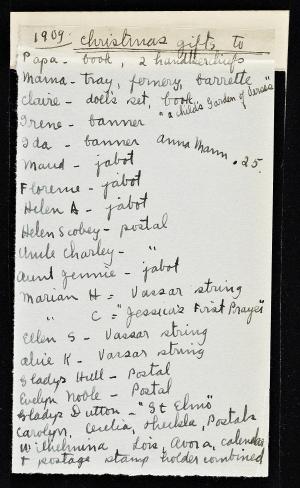 1909. Christmas gifts to
Papa - book, 2 handkerchiefs
Mama - tray, fernery, barrette
Claire - doll's set, book,
"a child's Garden of Verses"
Irene - banner
Ida - banner Anna Mann .25.
Maud - jabot
Florence - jabot
Helen A - jabot
Helen Scobey - postal
Uncle Charley - "
Aunt Jennie - jabot
Marian H = Vassar string
" C = "Jessica's First Prayer"
Ellen S - Vassar string
Alice K - Vassar string
Gladys Hull - Postal
Evelyn Noble - Postal
Gladys Dutton - "St Elmo"
Carolyn, Cecilia, Thecksla, Postals
Wilhelmina Lois, Avora, calendar
+ postage stamp holder combined